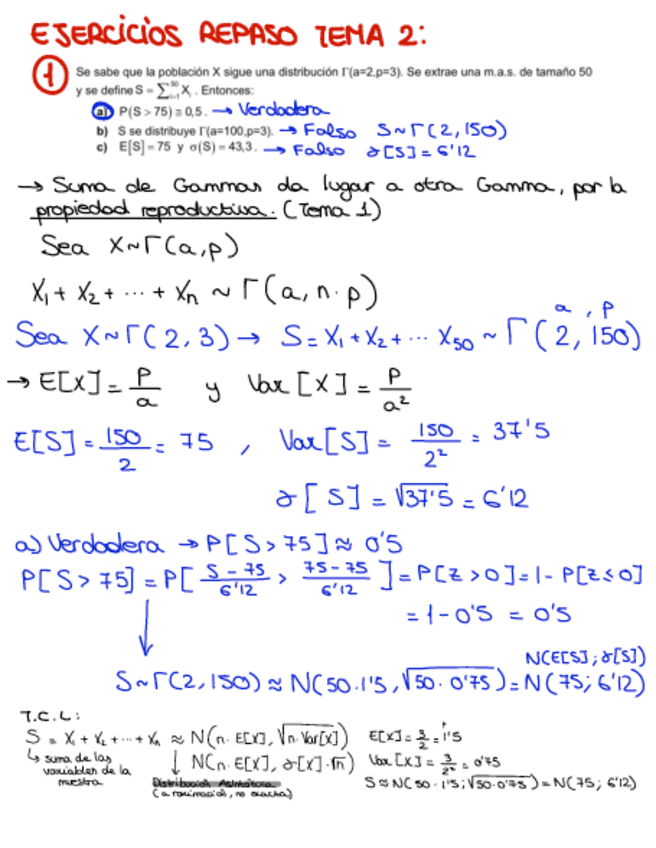 EJERCICIOS REPASO TEMA 2:
1 Se sabe que la población X sigue una distribución Γ(a=2,p=3). Se extrae una m.a.s. de tamaño 50
y se define S = ∑_{i=1}^{50} X_i. Entonces:
a) P(S > 75) ≅ 0,5. → Verdadera
b) S se distribuye Γ(a=100,p=3). → Falso S~Γ(2,150)
c) E[S] = 75 y σ(S) = 43,3. → Falso σ[S] = 6'12
→ Suma de Gammas da lugar a otra Gamma, por la
propiedad reproductiva. (Tema 1)
Sea X~Γ(a,p)
X₁ + X₂ + ... + Xn ~ Γ(a, n·p)
a , p
Sea X~Γ(2,3) → S = X₁ + X₂ + ... X₅₀ ~ Γ(2, 150)
→ E[X] = p/a y Var[X] = p/a²
E[S] = 150/2 = 75 , Var[S] = 150/2² = 37'5
σ[S] = √37'5 = 6'12
a) Verdadera → P[S > 75] ≈ 0'5
P[S > 75] = P[(S - 75)/6'12 > (75 - 75)/6'12] = P[Z > 0] = 1 - P[Z ≤ 0]
= 1 - 0'5 = 0'5
N(E[S]; σ[S])
S~Γ(2,150) ≈ N(50·1'5, √50·0'75) = N(75; 6'12)
T.C.L:
S = X₁ + X₂ + ... + Xn ≈ N(n·E[X], √n·Var[X]) E[X] = 3/2 = 1'5
↳ suma de las variables de la muestra ↓ N(n·E[X], σ[X]·√n) Var[X] = 3/2² = 0'75
Distribución Asintótica S ≈ N(50·1'5; √50·0'75) = N(75; 6'12)
(aproximación, no exacta)